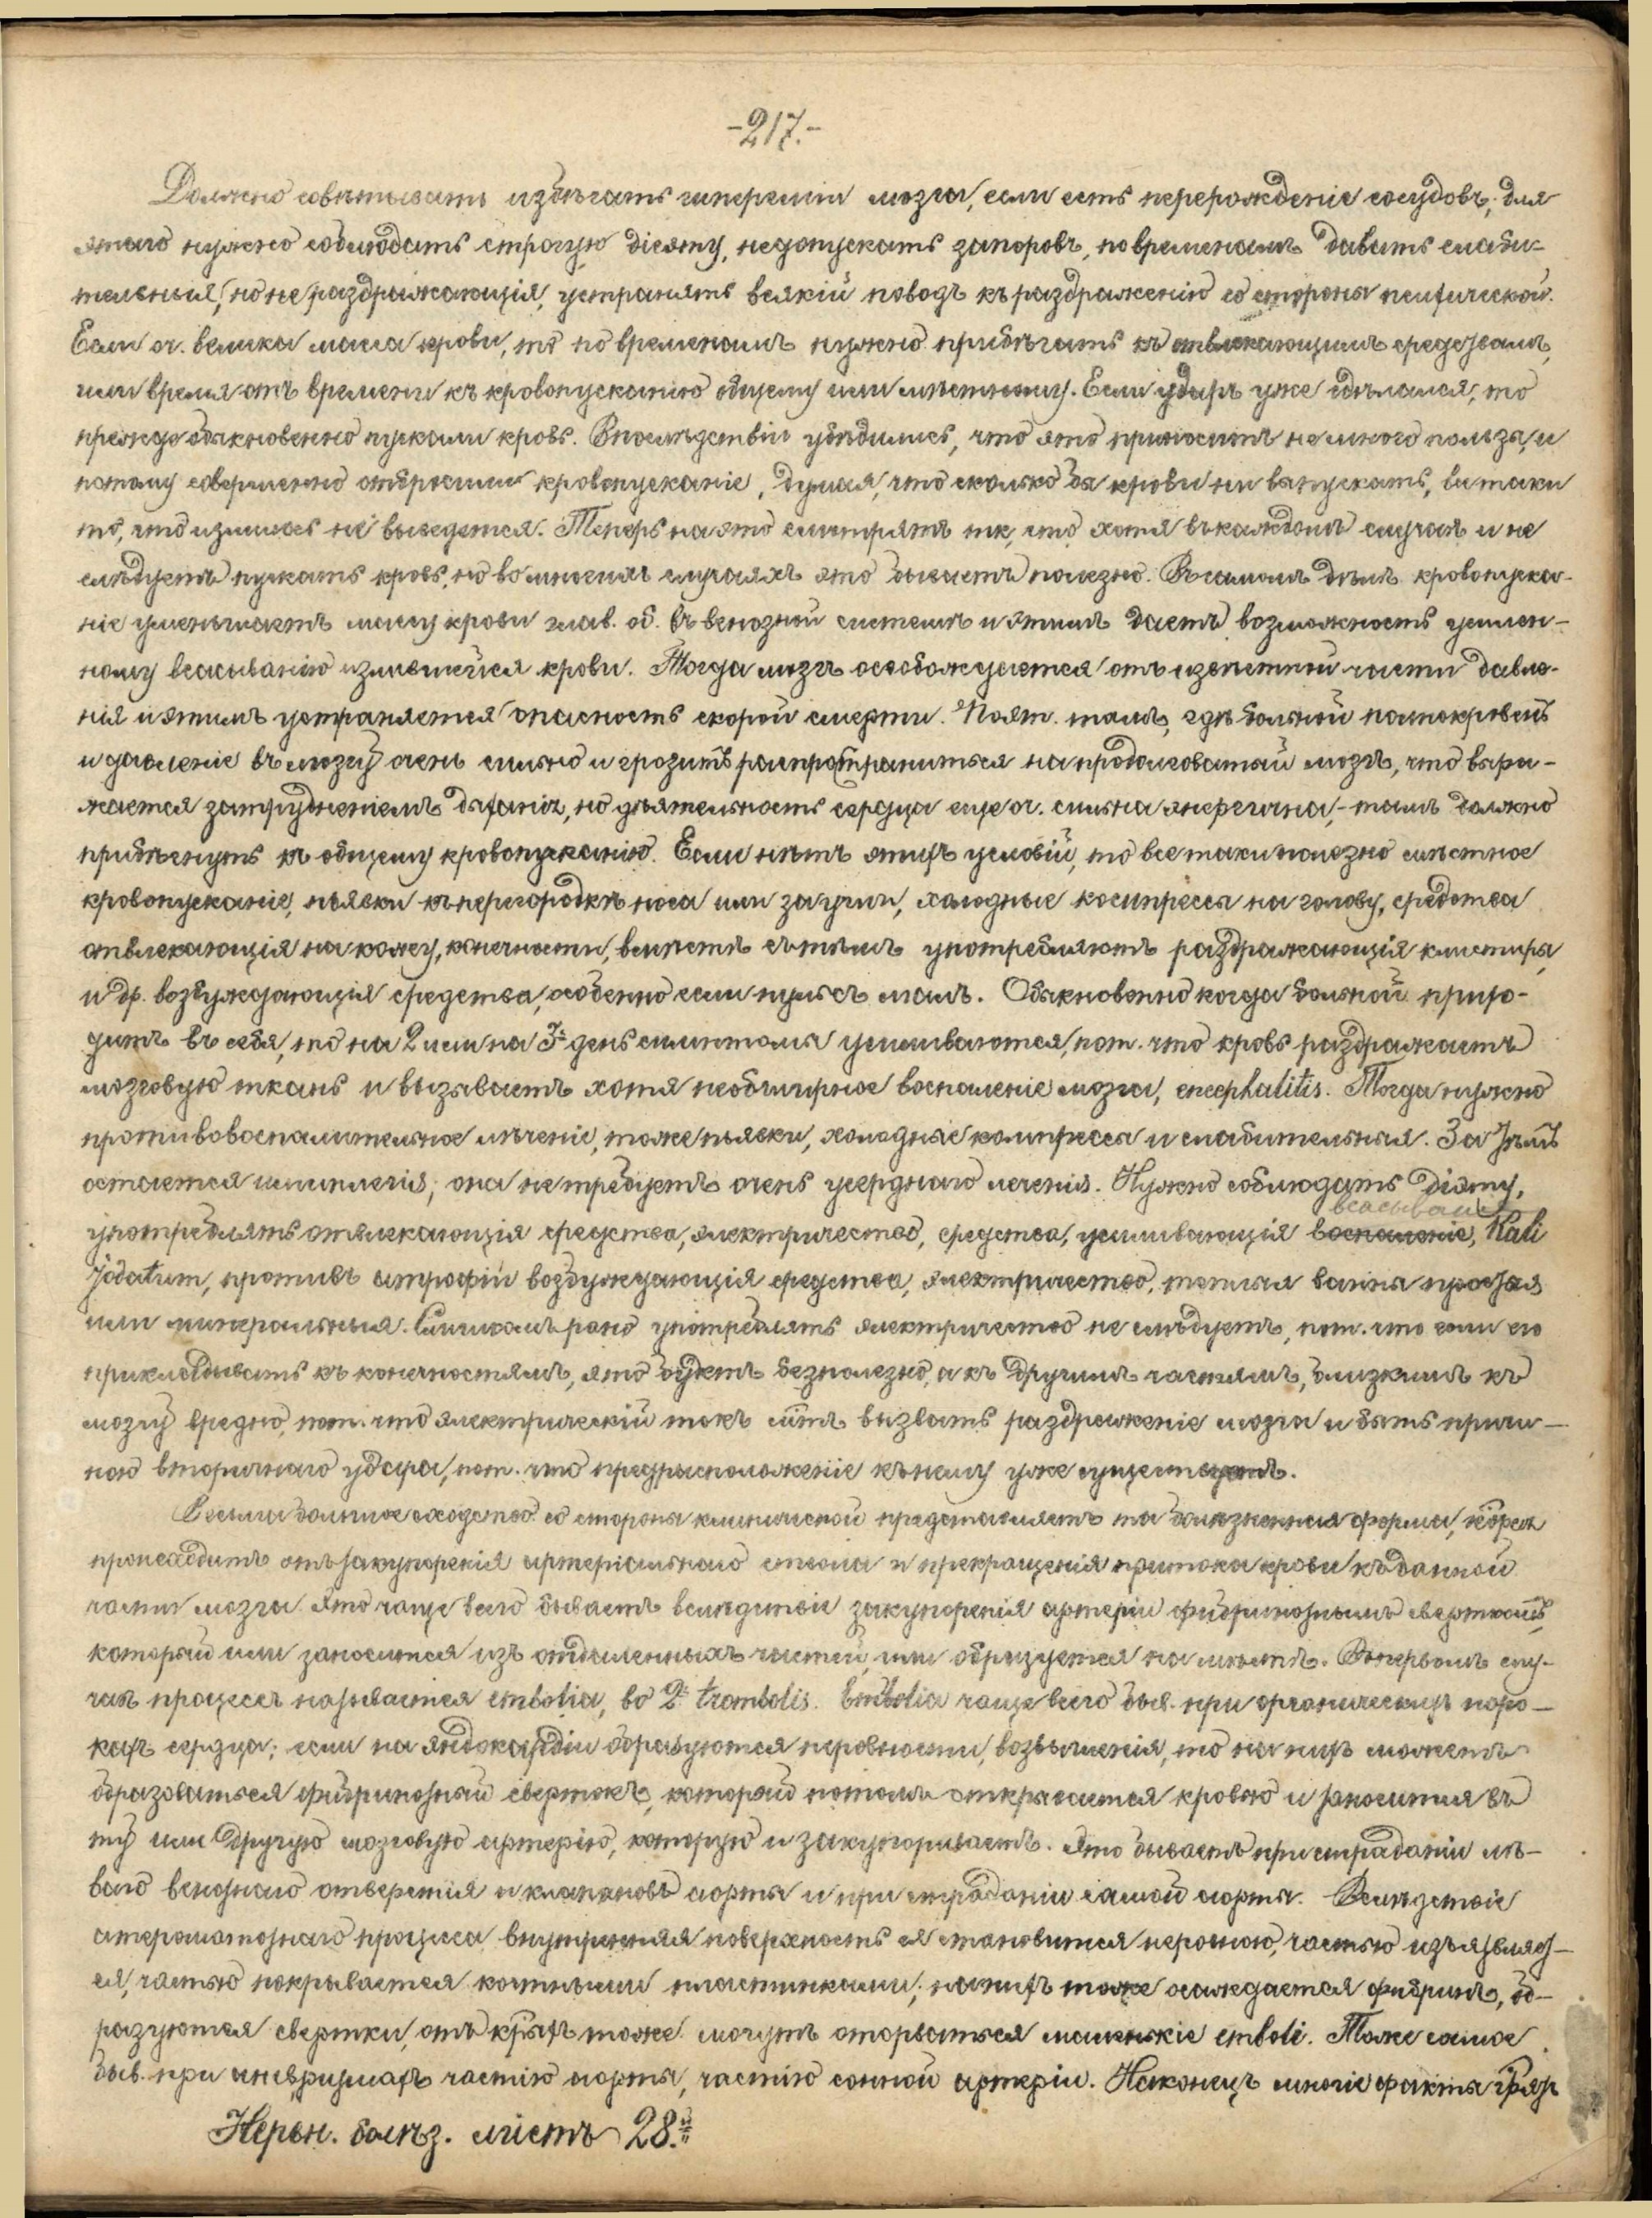 -217.-
Должно совѣтывать избѣгать гипереміи мозга, если есть перерожденіе сосудовъ; для
этаго нужно соблюдать строгую діэту, недопускать запоровъ, повременамъ давать слаби-
тельныя, но не раздражающія, устранять всякій поводъ къ раздраженію со стороны психической.
Если оч. велика масса крови, то по временамъ нужно прибѣгать къ отвлекающимъ средствамъ,
или время отъ времени къ кровопусканію общему или мѣстному. Если ударъ уже сдѣлался, то
прежде обыкновенно пускали кровь. Впослѣдствіи убѣдились, что это приноситъ не много пользы, и
потому совершенно отбросили кровопусканіе, думая, что сколько бы крови ни выпускать, витаки
то, что излилось не выведется. Теперь на это смотрятъ тк, что хотя въ каждомъ случаѣ и не
слѣдуетъ пускать кровь, но во многихъ случаяхъ это бываетъ полезно. Въ самомъ дѣлѣ кровопуска-
ніе уменьшаетъ массу крови глав. об. въ венозной системѣ и этимъ даетъ возможность усилен-
ному всасыванію излившейся крови. Тогда мозгъ освобождается отъ извѣстной части давле-
нія и этимъ устраняется опасность скорой смерти. Поэт. тамъ, гдѣ больной полнокровенъ
и давленіе въ мозгу очень сильно и грозитъ распространиться на продолговатый мозгъ, что выра-
жается затрудненіемъ дыханія, но дѣятельность сердца еще оч. сильна энергична, - тамъ должно
прибѣгнуть къ общему кровопусканію. Если нѣтъ этихъ условій, то все таки полезно мѣстное
кровопусканіе, пьявки къ перегородкѣ носа или за уши, холодные компрессы на голову, средства
отвлекающія на кожу, конечности, вмѣстѣ съ тѣмъ употребляютъ раздражающія клистиры,
и др. возбуждающія средства, особенно если пульсъ малъ. Обыкновенно когда больной прихо-
дитъ въ себя, то на 2 или на 3й день симптомы усиливаются, пот. что кровь раздражаетъ
мозговую ткань и вызываетъ хотя необширное воспаленіе мозга, encephalitis. Тогда нужно
противовоспалительное лѣченіе, тоже пьявки, холодные компрессы и слабительныя. За тѣмъ
остается гемиплегія; она не требуетъ очень усерднаго леченія. Нужно соблюдать діэту,
всасываніе
употреблять отвлекающія средства, электричество, средства, усиливающія воспаленіе, Kali
Jodatum, противъ атрофіи возбуждающія средства, электричество, теплыя ванны простыя
или минеральныя. Слишкомъ рано употреблять электричество не слѣдуетъ, пот. что если его
прикладывать къ конечностямъ, это будетъ безполезно, а къ другимъ частямъ, близкимъ къ
мозгу вредно, пот. что электрическій токъ мжтъ вызвать раздраженіе мозга и быть причи-
ною вторичнаго удара, пот. что предрасположеніе къ нему уже существуетъ.
Весьма большое сходство со стороны клинической представляетъ та болѣзненная форма, котрая
происходитъ отъ закупоренія артеріальнаго ствола и прекращенія притока крови къ данной
части мозга. Это чаще всего бываетъ вслѣдствіе закупоренія артеріи фибринознымъ сверткомъ,
который или заносится изъ отдаленныхъ частей, или образуется на мѣстѣ. Въ первомъ слу-
чаѣ процессъ называется embolia, во 2. trombolis. Embolia чаще всего быв. при органическихъ поро-
кахъ сердца; если на эндокардіи образуются неровности, возвышенія, то на нихъ можетъ
образоваться фибринозный свертокъ, который потомъ открывается кровью и уносится въ
ту или другую мозговую артерію, которую и закупориваетъ. Это бываетъ при страданіи лѣ-
ваго венознаго отверстія и клапановъ аорты и при страданіи самой аорты. Вслѣдствіе
атероматознаго процесса внутренняя поверхность ея становится неровною, частью изъязвляет-
ся, частью покрывается костными пластинками; на нихъ тоже осаждается фибринъ, об-
разуются свертки, отъ кртрыхъ тоже могутъ оторваться маленькіе emboli. Тоже самое
быв. при аневризмахъ частію аорты, частію сонной артеріи. Наконецъ многіе факты
Нервн. болѣз. листъ 28.й